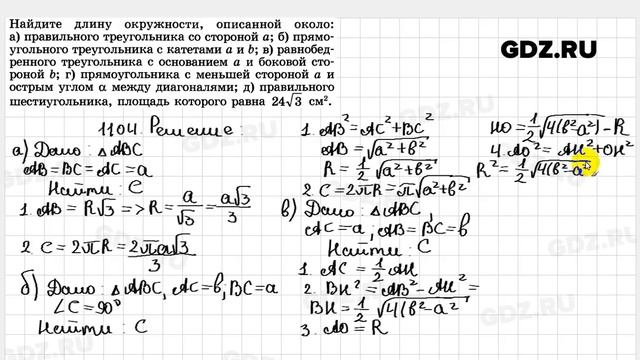 Найдите длину окружности, описанной около:
а) правильного треугольника со стороной a; б) прямо-
угольного треугольника с катетами a и b; в) равнобед-
ренного треугольника с основанием a и боковой сто-
роной b; г) прямоугольника с меньшей стороной a и
острым углом α между диагоналями; д) правильного
шестиугольника, площадь которого равна 24√3 см².
GDZ.RU
1104. Решение:
а) Дано: △ABC
AB=BC=AC=a
Найти: C
1. AB=R√3 => R= a/√3 = a√3/3
2. C=2πR= 2πa√3/3
б) Дано: △ABC, AC=b, BC=a
∠C=90°
Найти: C
1. AB²=AC²+BC²
AB=√a²+b²
R=1/2 √a²+b²
2. C=2πR=π√a²+b²
в) Дано: △ABC,
AC=a, AB=BC=b
Найти: C
1. AC=1/2 AH
2. BH²=AB²-AH²=
BH=1/2 √4(b²-a²
3. AO=R
HO=1/2 √4(b²-a²)-R
4. AO²=AH²+OH²
R²=1/2 √4(b²-a²